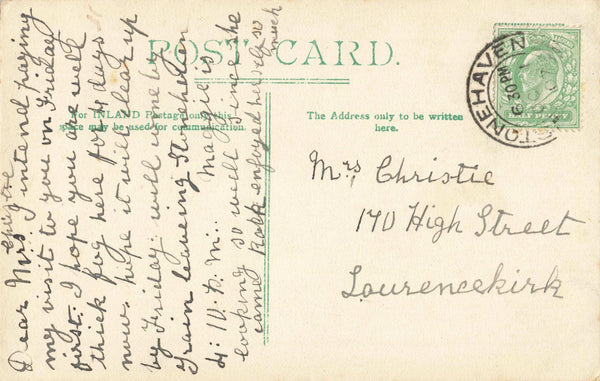 POST CARD.
For INLAND Postage only this
space may be used for communication.
The Address only to be written
here.
STONEHAVEN
6.30 PM
HALFPENNY
Dear Mrs Christie
I intend paying
my visit to you on Friday
first. I hope you are well
thick fog here for 4 days
now. hope it will clear up
by Friday. will come by
Train leaving Stonehaven
4:10 P.M. Maggie is
looking so well since she
came back enjoyed herself so
much
Mrs Christie
170 High Street
Lourencekirk